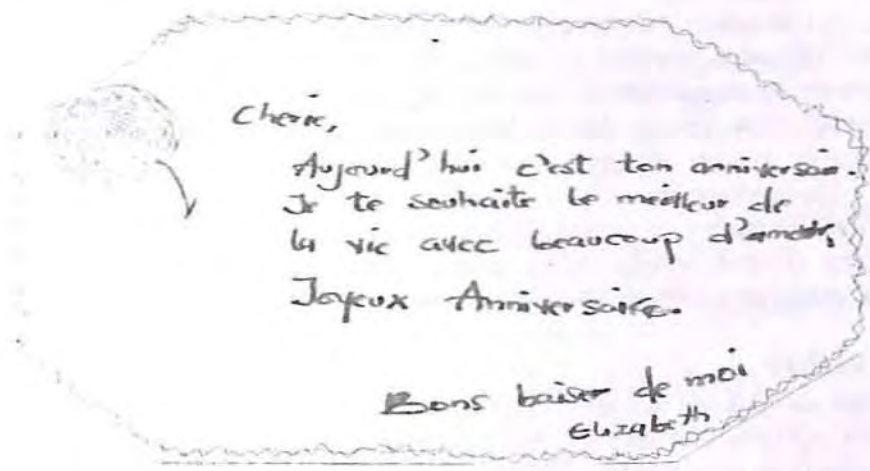 Cherie,
Aujourd'hui c'est ton anniversair.
Je te souhaite le meilleur de
la vie avec beaucoup d'amour,
Joyeux Anniversaire.
Bons baiser de moi
Elizabeth